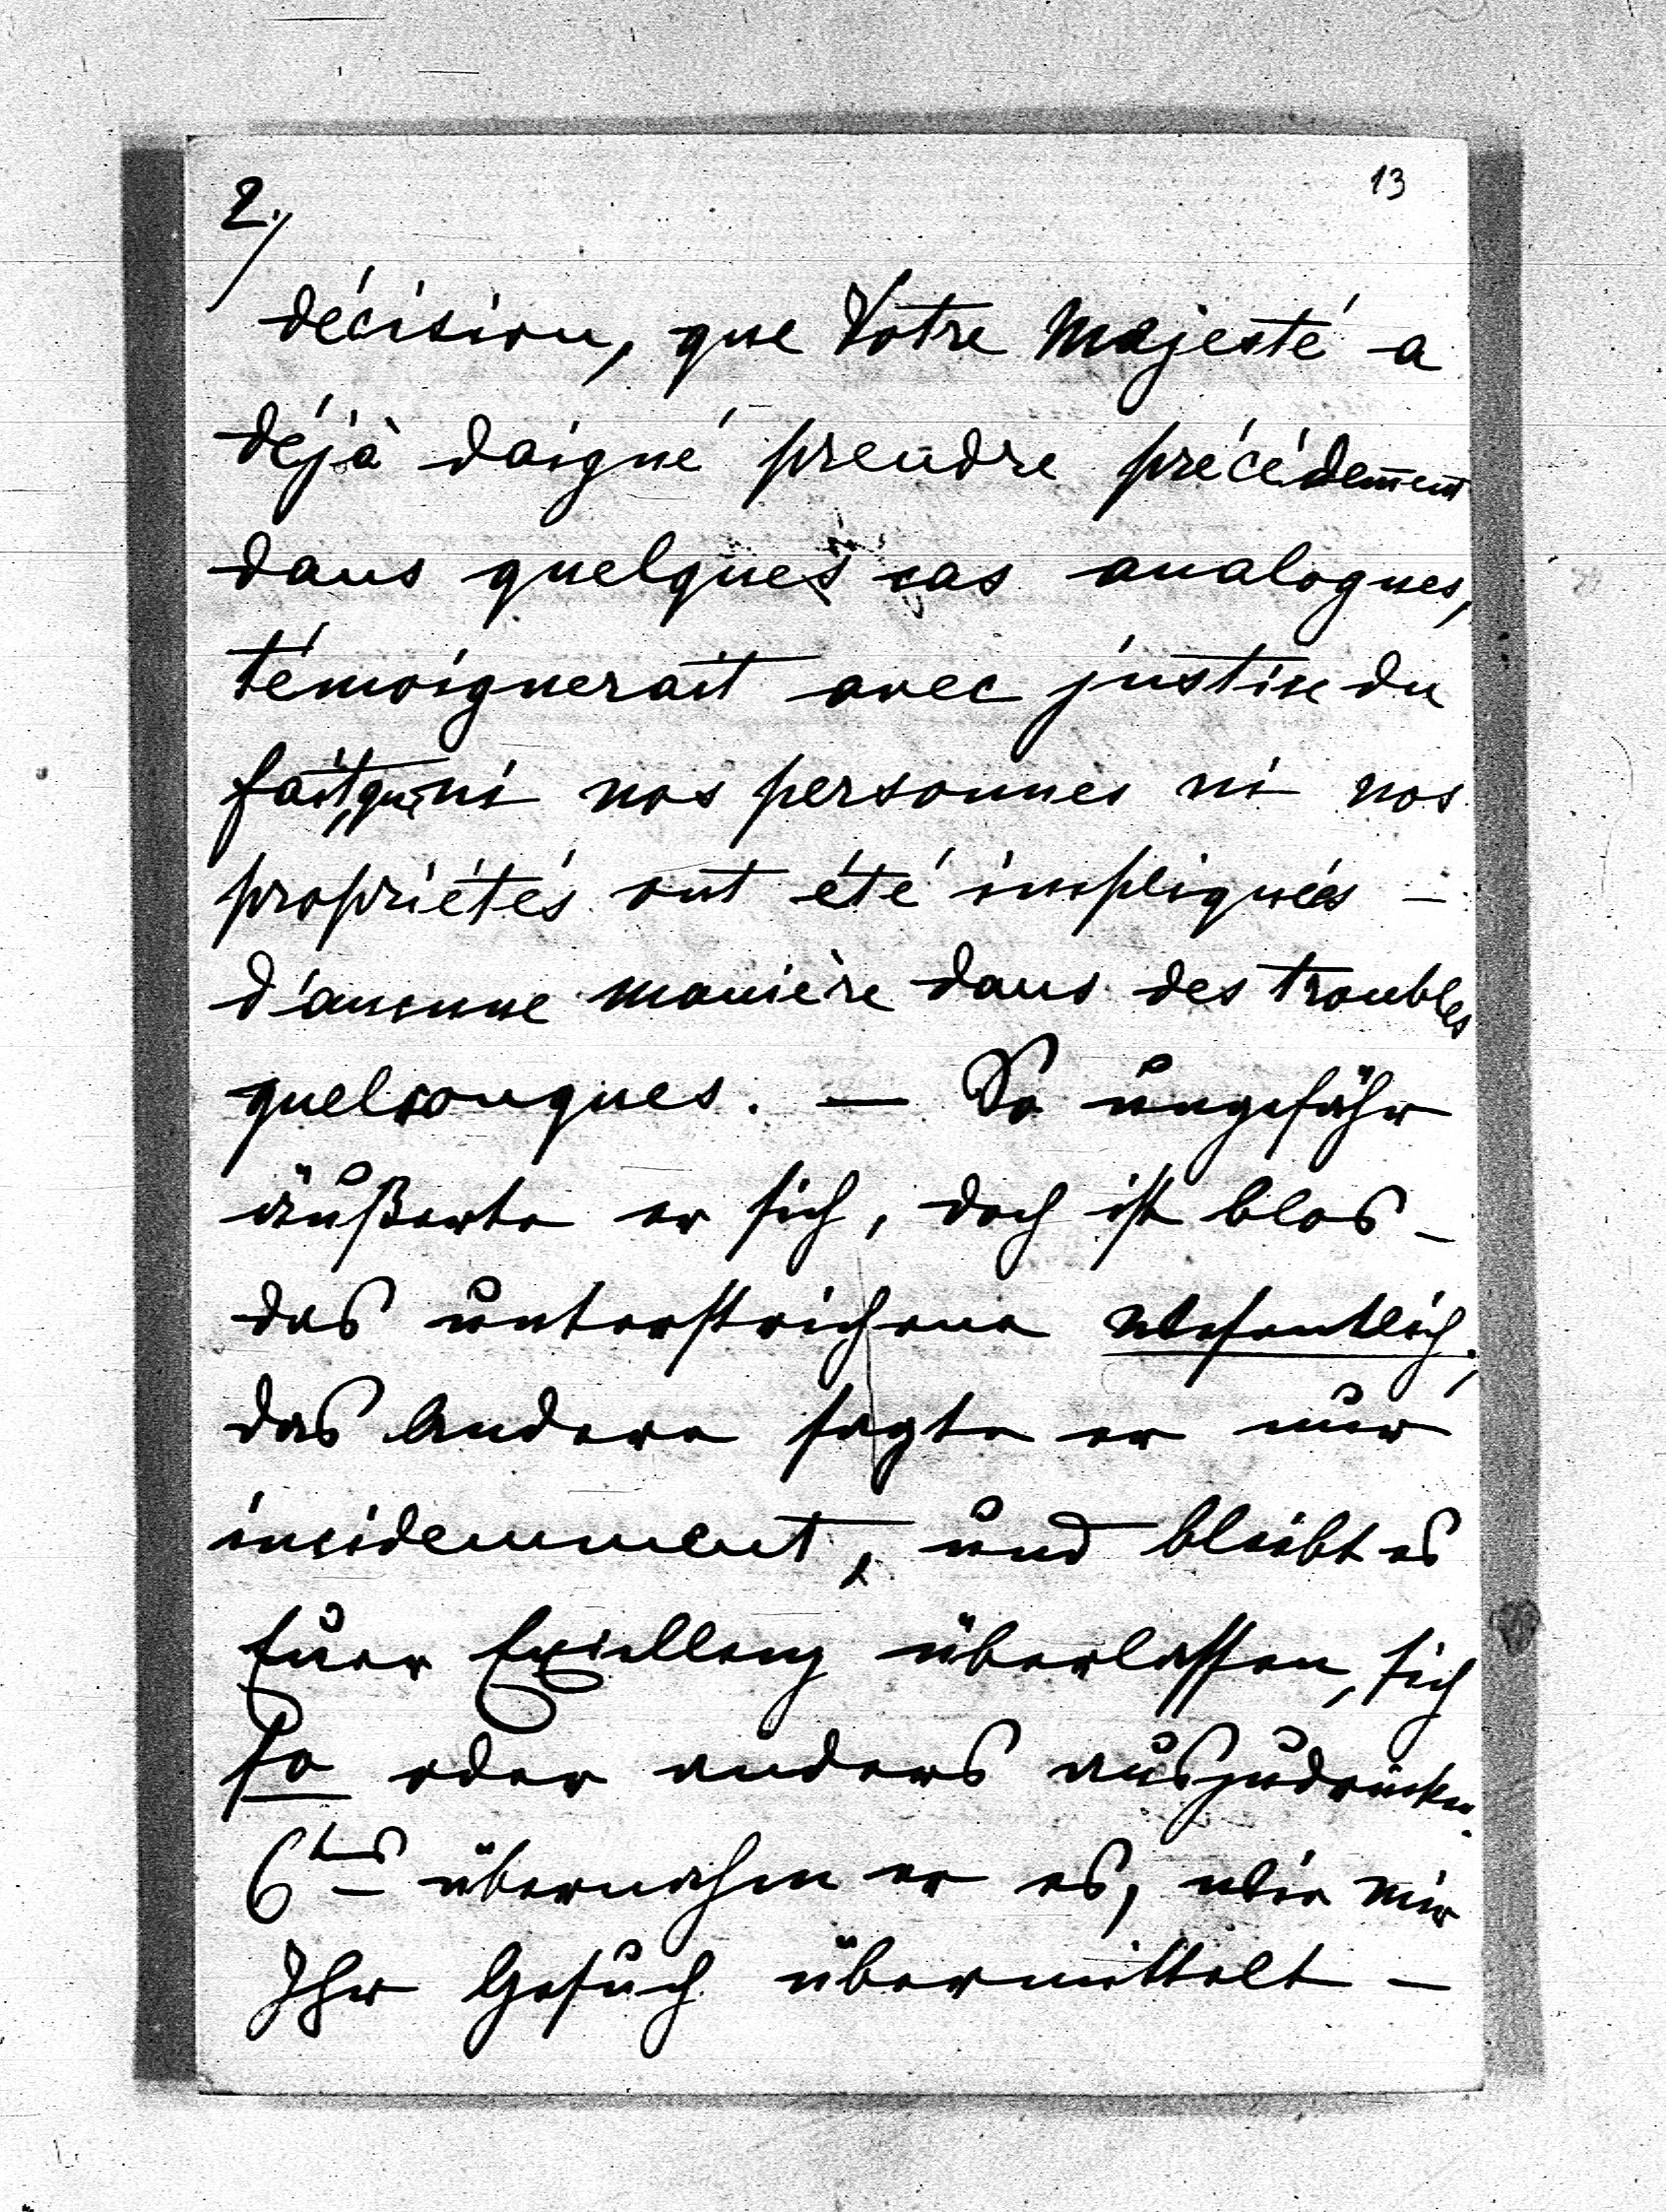 13
2./
décision, que Votre Majesté a
déjà daigné prendre précédem̅ent
dans quelques cas analogues,
témoignerait avec justice du
fait, que, ni nos personnes ni nos
propriétés ont été impliquées –
d'aucune manière dans des troubles
quelconques. — So ungefähr
äußerte er sich, doch ist blos –
das unterstrichene wesentlich;
das Andere sagte er nur
incidemment, und bleibt es
Euer Exzellenz überlassen, sich
so oder anders auszudrücken.
6tens übernahm er es, wie mir
Ihr Gesuch übermittelt –